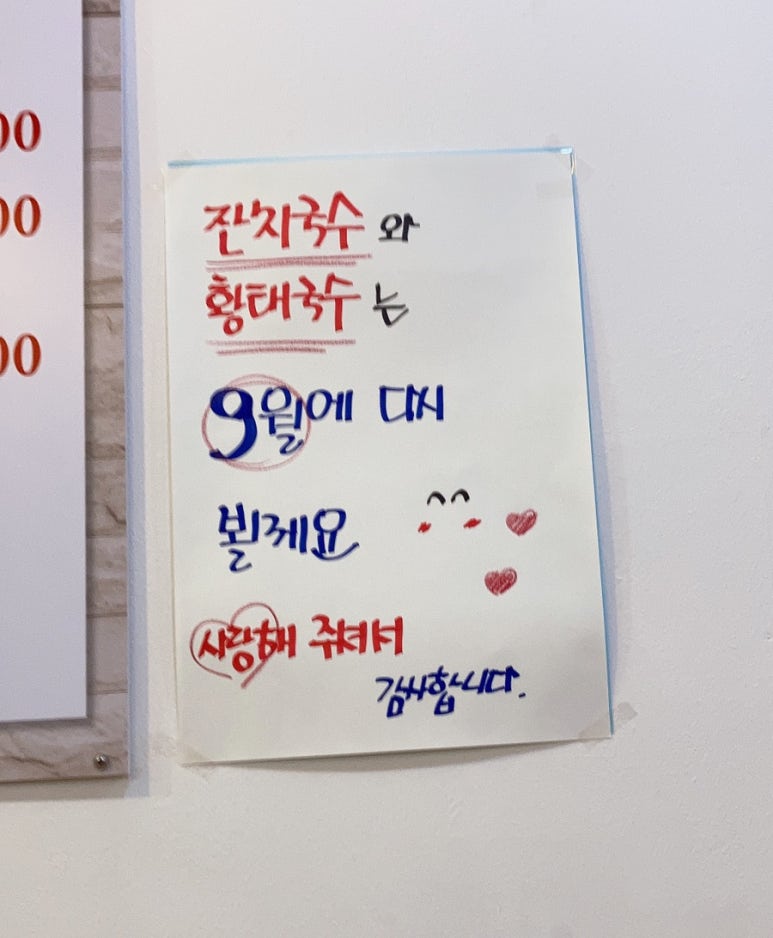 00
00
00
잔치국수와
황태국수는
9월에 다시
뵐게요
사랑해 줘서
감사합니다.